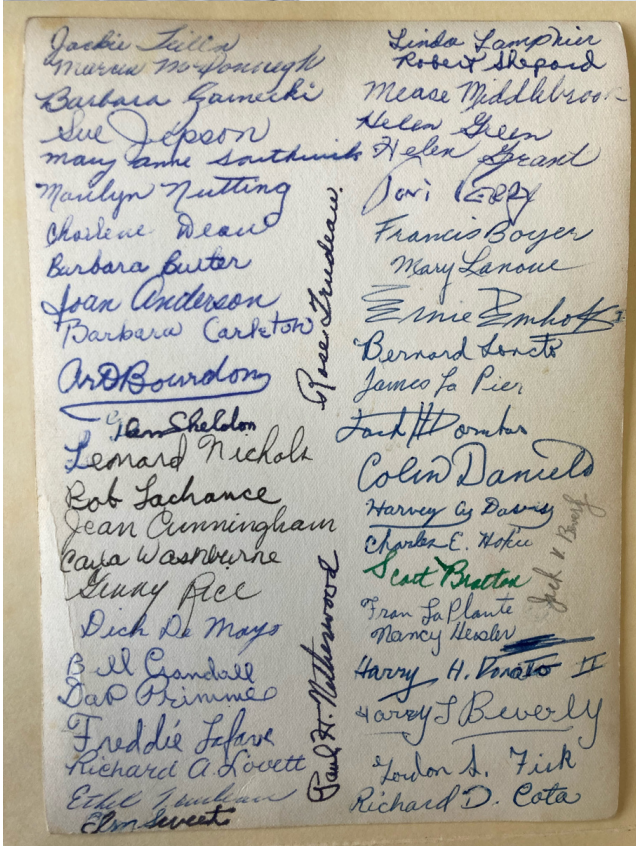 Jackie
Marcia McDonnegh
Barbara Garnecki
Sue Jepson
Mary Anne Southwick
Marilyn Nutting
Charlene Dean
Barbara Burter
Joan Anderson
Barbara Carleton
Art Bourdon
Sheldon
Leonard Nichols
Bob Lachance
Jean Cunningham
Caya Washburne
Ginny Rice
Dick De Mayo
Bill Crandall
Dap Primmer
Freddie Lafave
Richard A. Lovett
Ethel
Elm Sweet
Rose Trudeau.
Paul H. Netherwood
Linda Lamphier
Robert Shepard
Mease Middlebrook
Helen Green
Helen Grant
Toni
Francis Boyer
Mary Lanoue
Ernie Emhoff
Bernard
James La Pier
Jack H Dombar
Colin Daniels
Harvey G Davis
Charles E.
Scott Bratton
Jack V. Beverly
Fran LaPlante
Nancy Hessler
Harry H. Donato II
Harry L Beverly
Gordon S. Fisk
Richard D. Cota